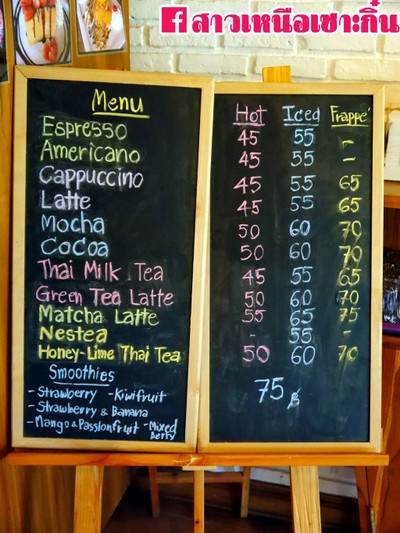 สาวเหนือเซาะกิ๋น
Menu
Hot Iced Frappe'
Espresso 45 55 -
Americano 45 55 -
Cappuccino 45 55 65
Latte 45 55 65
Mocha 50 60 70
Cocoa 50 60 70
Thai Milk Tea 45 55 65
Green Tea Latte 50 60 70
Matcha Latte 55 65 75
Nestea - 55 -
Honey-Lime Thai Tea 50 60 70
Smoothies 75 ฿
- Strawberry - Kiwifruit
- Strawberry & Banana
- Mango & Passionfruit - Mixed Berry